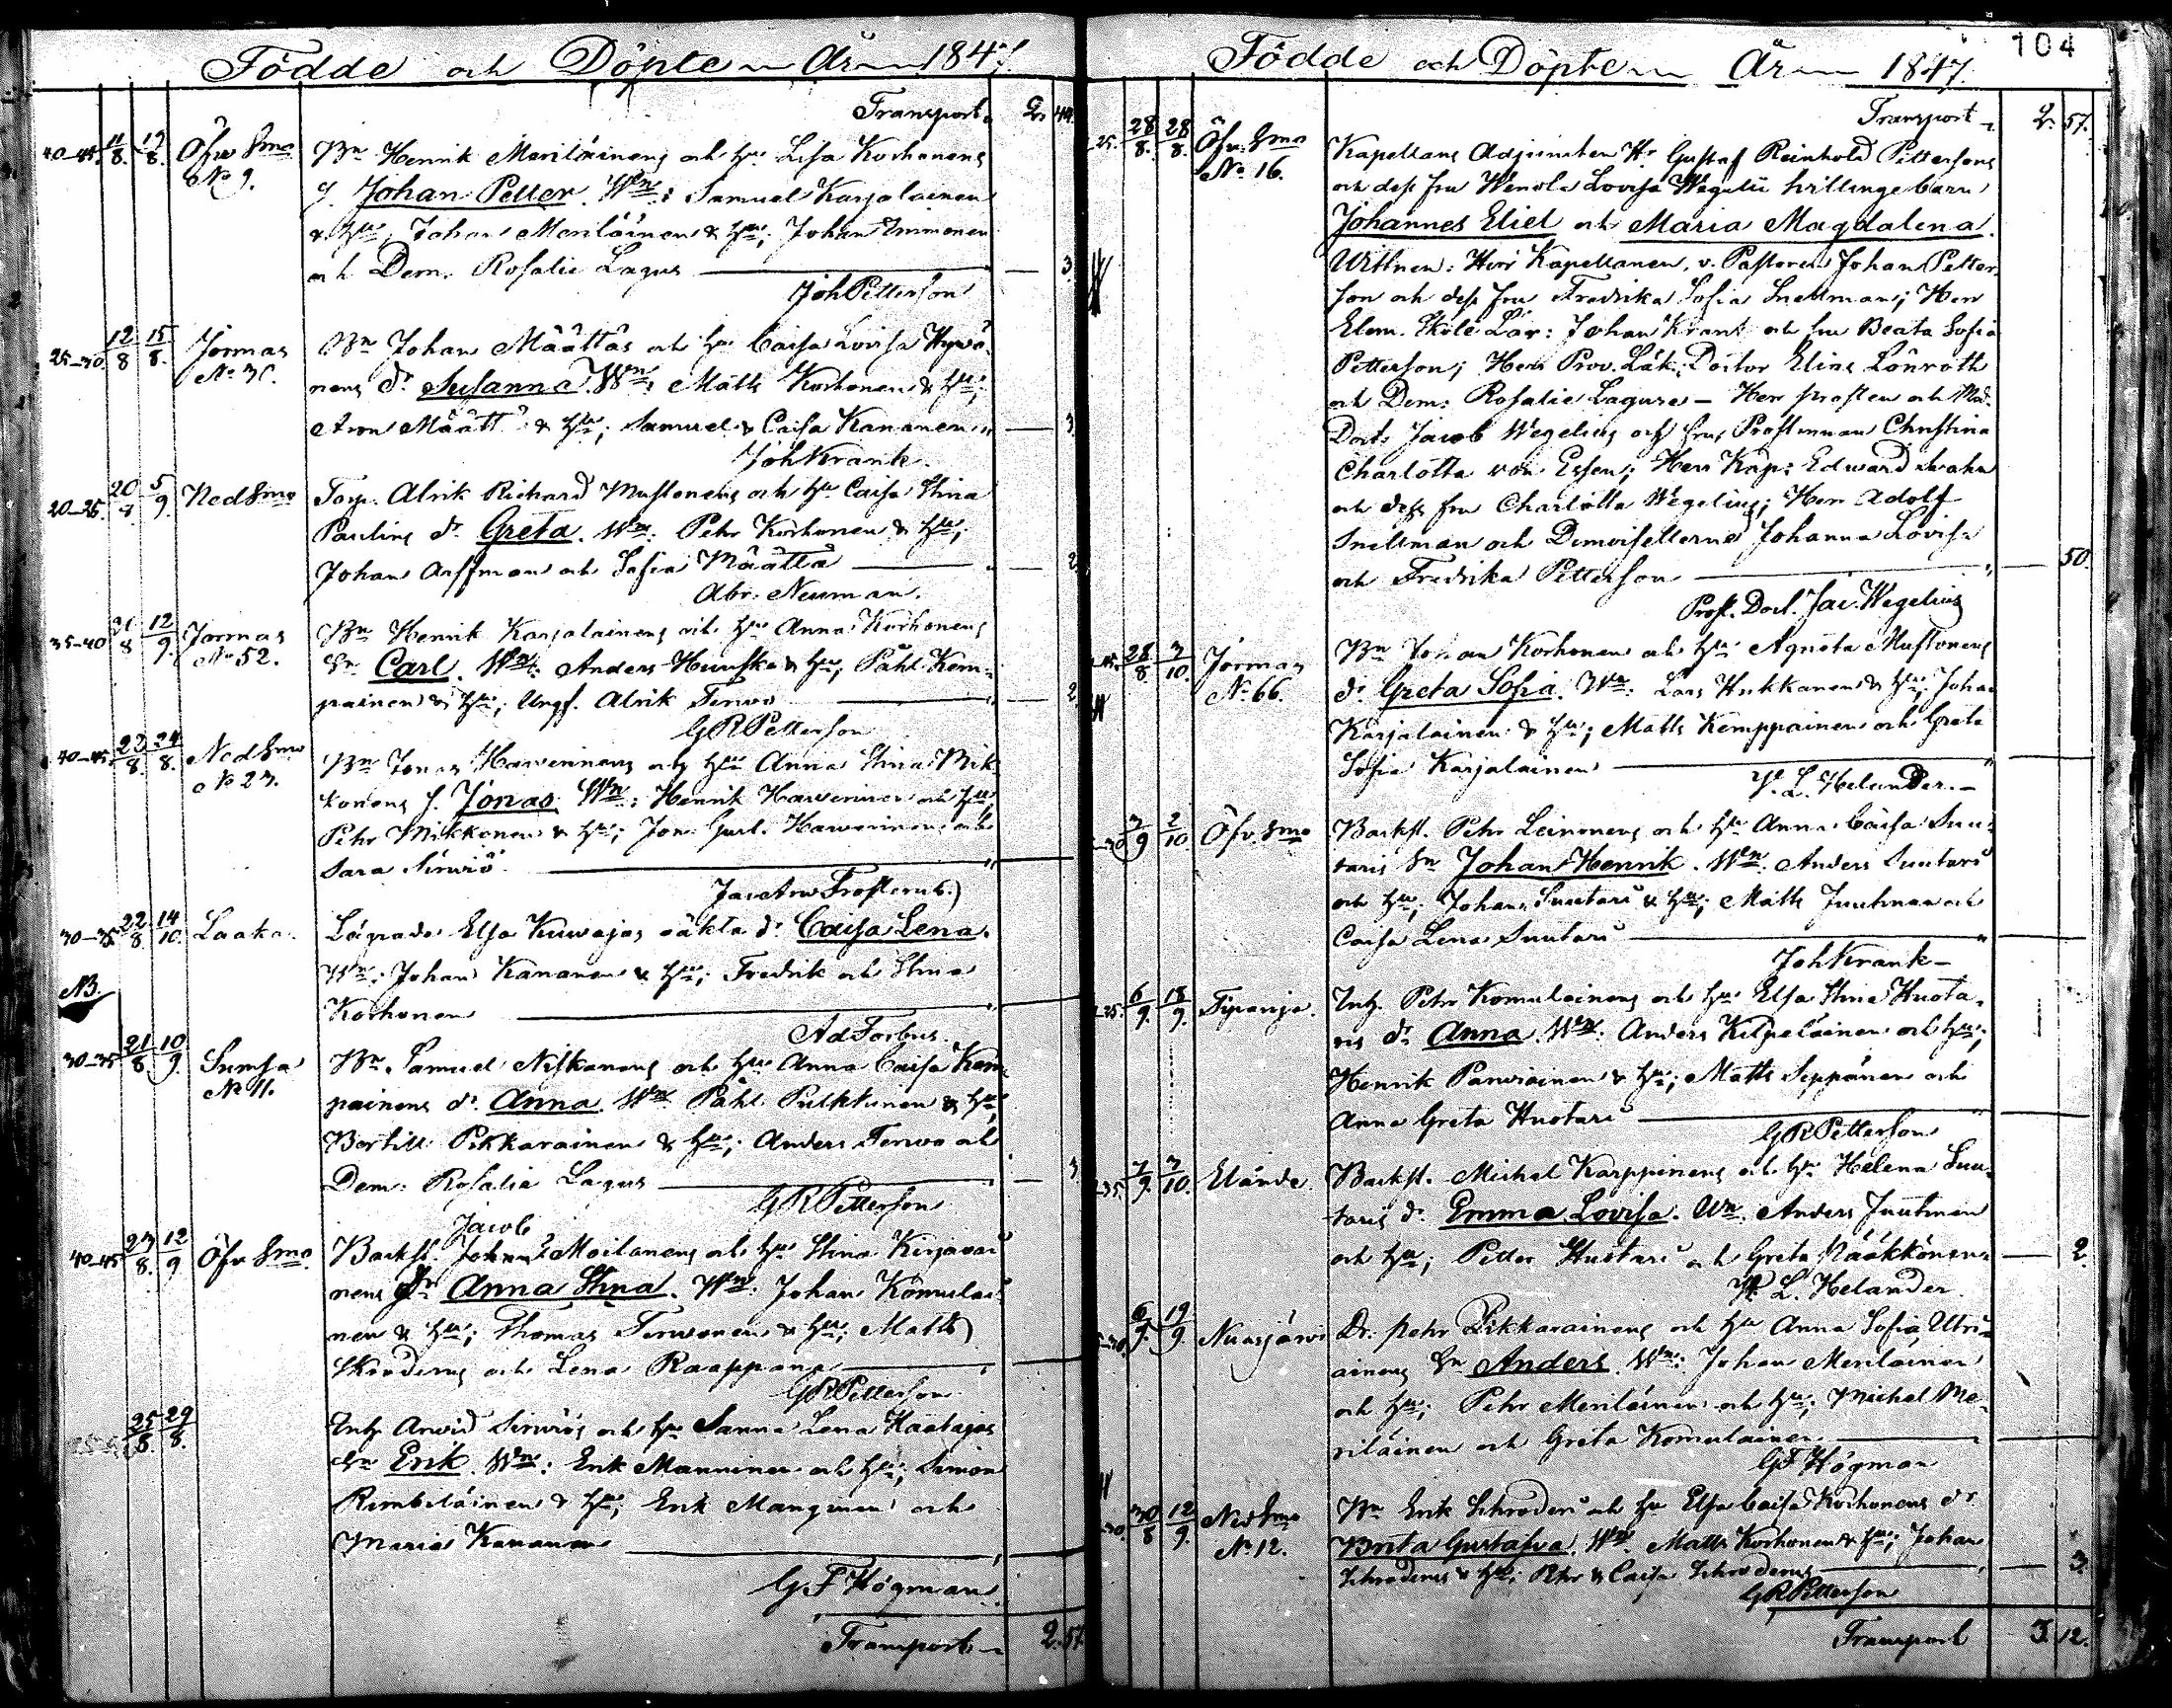 Födde och Döpte År 1847
Transport 2. 44.
40–45. 11/8. 13/8. Öfv Smo Bn Henrik Meriläinens och hu Lisa Korhonens
No 9. s. Johan Petter. Wn: Samuel Karjalainen
& hu; Johan Meriläinen & hu; Johan Immonen
och Dem. Rosalie Lagus — 3.
Joh Petterson
25–30. 12/8 15/8. Jormas Bn Johan Määttäs och hu Caisa Lovisa Hyvö-
No 30. nens dr Susanna. Wn: Matts Korhonen & hu;
Aron Määttä & hu; Samuel & Caisa Kananen — 3.
Joh Krank.
20–25. 20/8. 5/9. Ned Smo Torp. Alrik Richard Mustonens och hu Caisa Stina
Paulins dr Greta. Wn: Pehr Korhonen & hu;
Johan Aeffman och Sofia Määttä — 2.
Abr. Neuman.
35–40 21/8 12/9. Jormas Bn Henrik Karjalainens och hu Anna Korhonens
No 52. Sn Carl. Wn: Anders Hunska & hu; Påhl Kem-
painen & hu; Ungf. Alrik Terwo — 2
G R Petterson
40–45. 23/8. 24/8. Ned Smo Bn Jonas Hawerinens och hu Anna Stina Mik-
No 23. konens s. Jonas. Wn: Henrik Hawerinen och hu;
Pehr Mikkonen & hu; Jon. Gust. Hawerinen och
Sara Sirwiö —
Jac And Frosterus.
30–35. 22/8. 14/10. Laaka. Löspada Elsa Kuwajas oäkta dr Caisa Lena.
Wn: Johan Kananen & hu; Fredrik och Stina
NB.
Korhonen —
Ad Forbus.
30–35 21/8. 10/9. Sumsa Bn Samuel Niskanens och hu Anna Caisa Kem-
No 11. painens dr Anna. Wn: Påhl Pulkkinen & hu;
Bertill Pikkarainen & hu; Anders Terwo och
Dem: Rosalia Lagus — 3
G R Petterson
Jacob
40–45 23/8. 12/9 Öfv Smo. Backst. Johan Moilanens och hu Stina Kirjavai-
nens dr Anna Stina. Wn: Johan Komulai-
nen & hu; Thomas Terwonen & hu; Matts
Skroderus och Lena Raappana —
G R Petterson
25/8. 29/8. Inh. Arvid Sirwiös och hu Sanna Lena Kaatajas
Sn Erik. Wn: Erik Manninen och hu; Simon
Rimbiläinen & hu; Erik Manginen och
Maria Kananen —
G F Högman.
Transport 2. 57.
104
Födde och Döpte År 1847.
Transport 2. 57.
25. 28/8. 28/8. Öfv. Smo Kapellans Adjuncten Hr Gustaf Reinhold Pettersons
No 16. och dess fru Wendla Lovisa Wegelii tvillinge barn
Johannes Eliel och Maria Magdalena.
Wittnen: Herr Kapellanen, v. Pastoren Johan Petter-
son och dess fru Fredrika Sofia Snellman; Herr
Elem. Skole Lär: Johan Krank och fru Beata Sofia
Petterson; Herr Prov. Läk: Doctor Elias Lönroth
och Dem: Rosalie Laguse – Herr Prosten och Med.
Doct. Jacob Wegelius och fru, Prostinnan Christina
Charlotta von Essen; Herr Kap: Edward Svahn
och dess fru Charlotta Wegelius; Herr Adolf
Snellman och Demoisellerne Johanna Lovisa
och Fredrika Petterson — 50.
Prost. Doct. Jac. Wegelius
28/8 3/10. Jormas Bn Johan Korhonens och hu Agneta Mustonens
No 66. dr Greta Sofia. Wn: Lars Hukkanen & hu; Johan
Karjalainen & hu; Matts Kemppainen och Greta
Sofia Karjalainen —
P. L. Helander. –
30 3/9 2/10 Öfv. Smo Backst. Pehr Leinonens och hu Anna Caisa Suu-
taris Sn Johan Henrik. Wn: Anders Suutari
och hu; Johan Suutari & hu; Matts Juutinen och
Caisa Lena Suutari —
Joh Krank –
25. 6/9. 18/9. Tipasoja. Inh. Pehr Komulainens och hu Elsa Stina Huota-
ris dr Anna. Wn: Anders Kilpeläinen och hu;
Henrik Parviainen & hu; Matts Seppänen och
Anna Greta Huotari —
G R Petterson
35. 7/9. 3/10. Elände. Backst. Michel Karppinens och hu Helena Suu-
taris dr Emma Lovisa. Wn: Anders Juutinen
och hu; Petter Huotari och Greta Nääkkönen — 2.
P. L. Helander.
30. 6/9. 19/9. Nuasjärvi Dr. Pehr Pikkarainens och hu Anna Sofia Utri-
ainens Sn Anders. Wn: Johan Meriläinen
och hu; Pehr Meriläinen och hu; Michel Me-
riläinen och Greta Komulainen —
G F Högman
30. 30/8 12/9. Ned Smo Bn Erik Schroderi och hu Elsa Caisa Korhonens dr
No 12. Brita Gustafva. Wn: Matts Korhonen & hu; Johan
Schroderus & hu; Pehr & Caisa Schroderus — 3.
G R Petterson
Transport 3. 12.